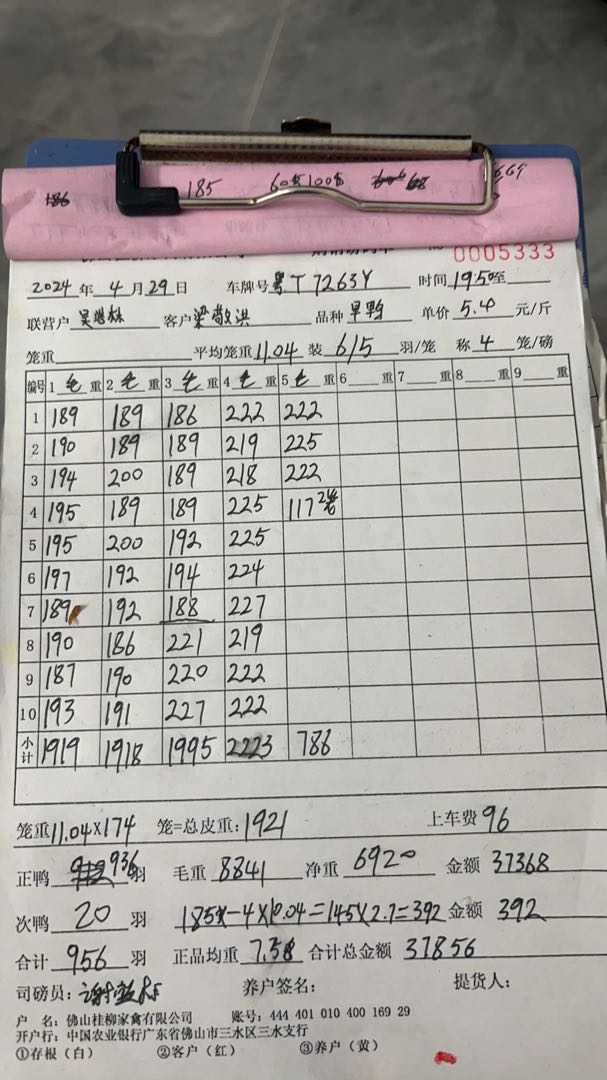 185 60羽100羽
0005333
2024年 4月29日 车牌号粤T7263Y 时间1950至
联营户 客户梁敬洪 品种 旱鸭 单价 5.4 元/斤
笼重 平均笼重11.04 装 6/5 羽/笼 称 4 笼/磅
编号 1 毛 重 2 毛 重 3 毛 重 4 毛 重 5 毛 重 6 重 7 重 8 重 9 重
1 189 189 186 222 222
2 190 189 189 219 225
3 194 200 189 218 222
4 195 189 189 225 117 2笼
5 195 200 192 225
6 197 192 194 224
7 189 192 188 227
8 190 186 221 219
9 187 190 220 222
10 193 191 227 222
小计 1919 1918 1995 2223 786
笼重11.04×174 笼=总皮重:1921 上车费96
正鸭 936 羽 毛重 8841 净重 6920 金额 37368
次鸭 20 羽 185斤-4×10.04=145×2.7=392 金额 392
合计 956 羽 正品均重 7.58 合计总金额 37856
司磅员: 养户签名: 提货人:
户 名:佛山桂柳家禽有限公司 账号:444 401 010 400 169 29
开户行:中国农业银行广东省佛山市三水区三水支行
①存根(白) ②客户(红) ③养户(黄)